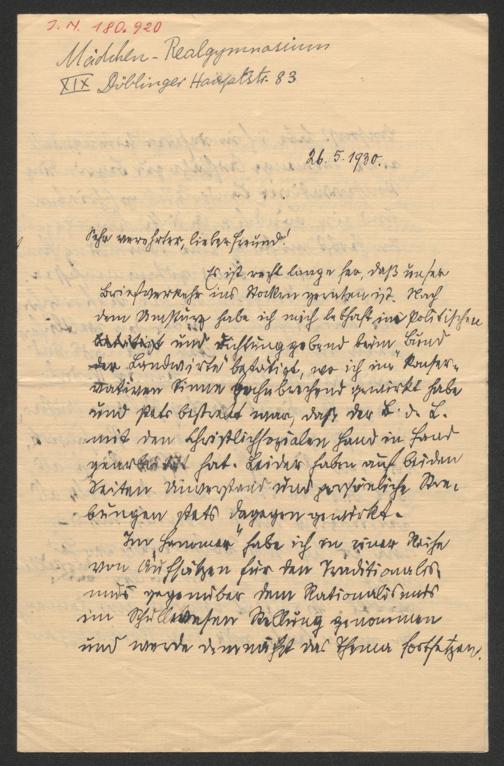 I. N. 180.920
Mädchen-Realgymnasium
XIX Döblinger Hauptstr. 83
26.5.1930.
Sehr verehrter, lieber Freund!
Es ist recht lange her, daß unser
Briefverkehr ins Stocken geraten ist. Nach
dem Umsturz habe ich mich lebhaft im Politischen
und richtunggebend beim "Bund
der Landwirte" betätigt, wo ich im konser-
vativen Sinne bahnbrechend gewirkt habe
und stets bestrebt war, daß der B. d. L.
mit den Christlichsozialen Hand in Hand
gearbeitet hat. Leider haben auf beiden
Seiten Unverstand und persönliche Stre-
bungen stets dagegen gewirkt.
Im habe ich in einer Reihe
von Aufsätzen für den Traditionalis-
mus gegenüber dem Rationalismus
im Schulwesen Stellung genommen
und werde demnächst das Thema fortsetzen.